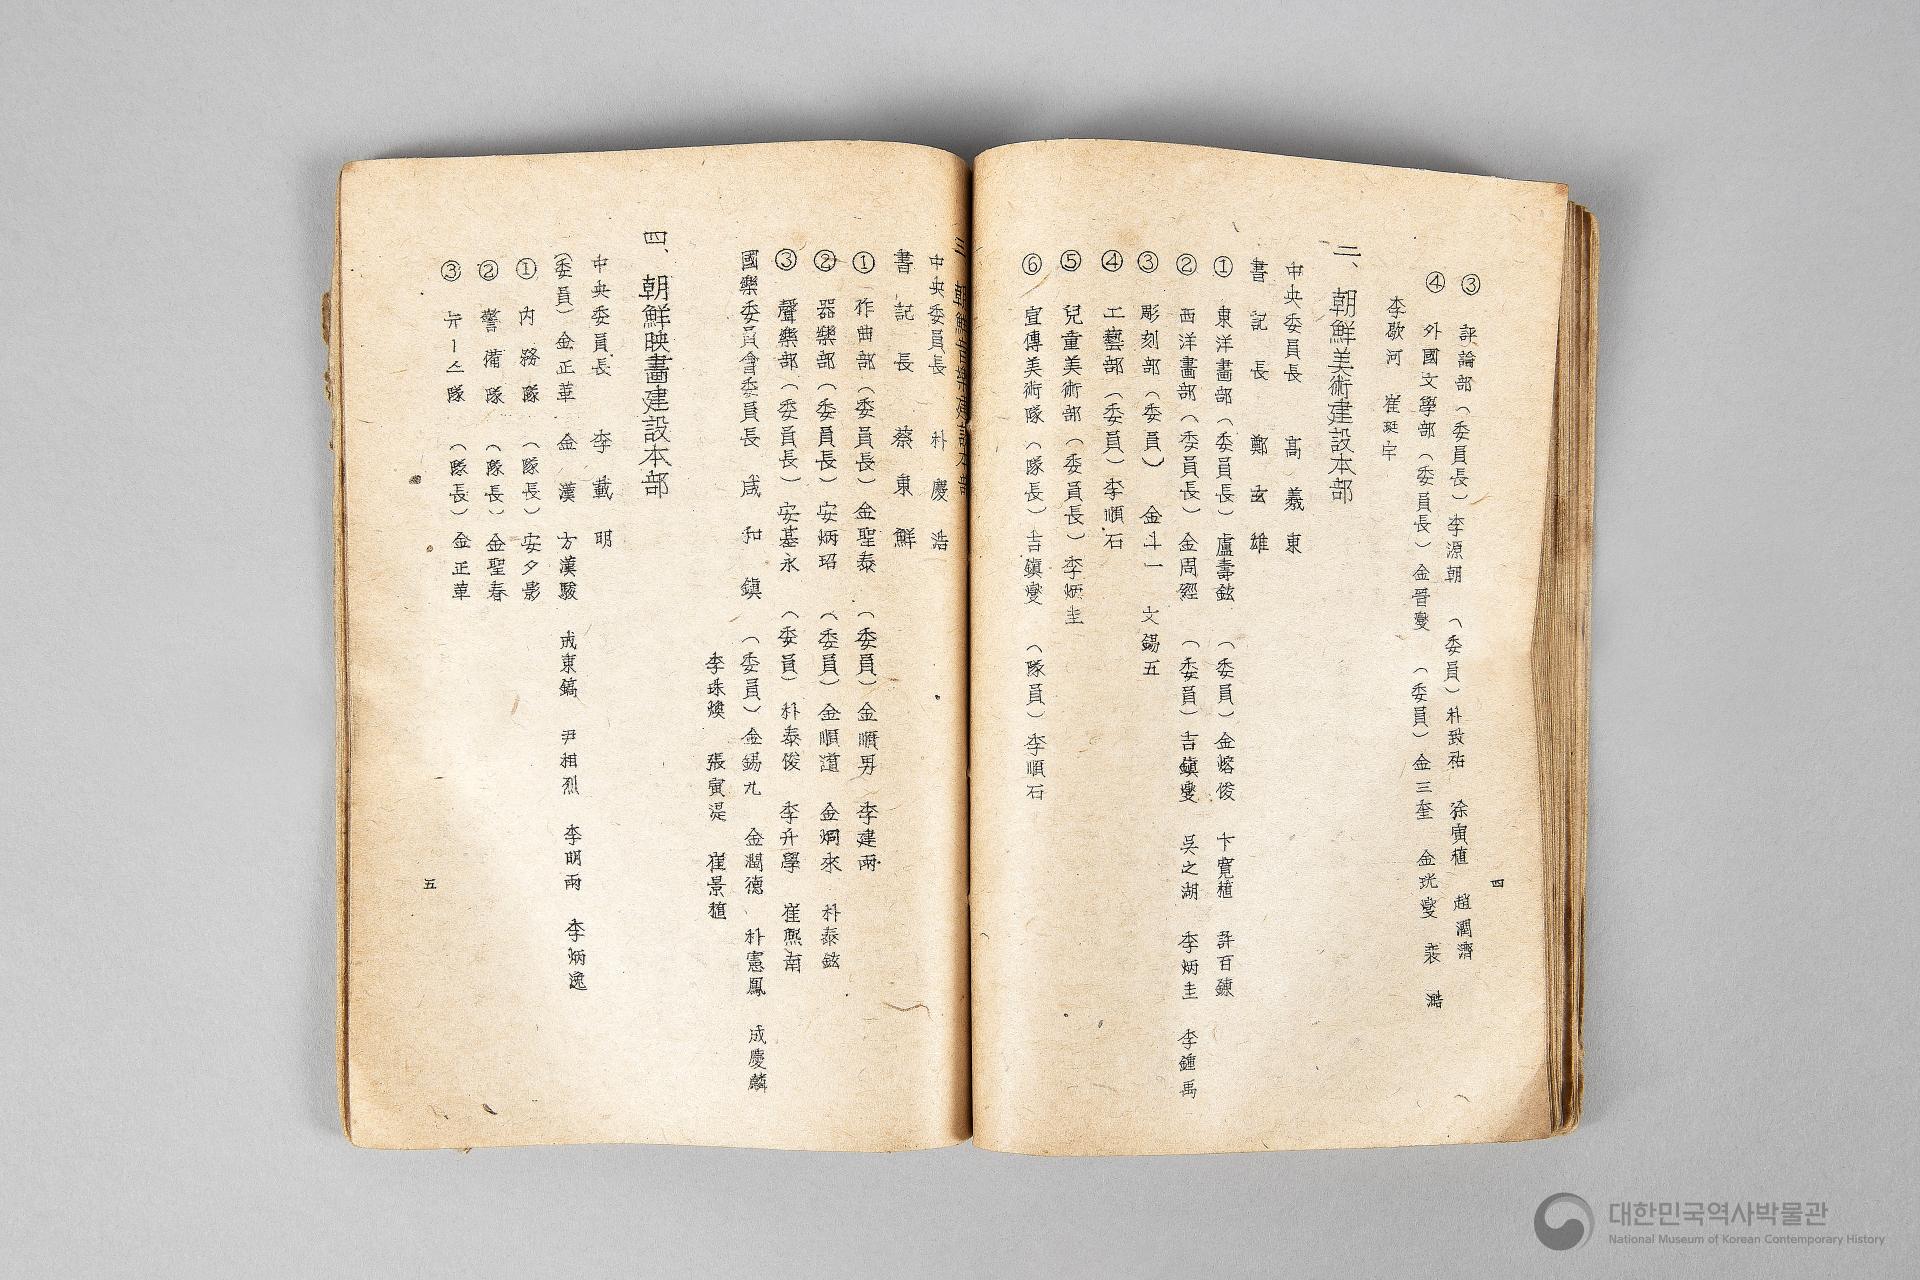 ③ 評論部（委員長）李源朝 （委員）朴致祐 徐寅植 趙潤濟
④ 外國文學部（委員長）金晋燮 （委員）金三奎 金珖燮 裵 澔
李敭河 崔珽宇
二、朝鮮美術建設本部
中央委員長 高羲東
書記長 鄭玄雄
① 東洋畵部（委員長）盧壽鉉 （委員）金熔俊 卞寬植 許百鍊
② 西洋畵部（委員長）金周經 （委員）吉鎭燮 吳之湖 李炳圭 李鍾禹
③ 彫刻部（委員） 金斗一 文錫五
④ 工藝部（委員）李順石
⑤ 兒童美術部（委員長）李炳圭
⑥ 宣傳美術隊（隊長）吉鎭燮 （隊員）李順石
四
三 朝鮮音樂建設本部
中央委員長 朴慶浩
書記長 蔡東鮮
① 作曲部（委員長）金聖泰 （委員）金順男 李建雨
② 器樂部（委員長）安炳玿 （委員）金順道 金炯來 朴泰鉉
③ 聲樂部（委員長）安基永 （委員）朴泰俊 李升學 崔熙南
國樂委員會委員長 咸和鎭 （委員）金錫九 金潤德 朴憲鳳 成慶麟
李珠煥 張寅湜 崔景植
四、朝鮮映畵建設本部
中央委員長 李載明
（委員）金正革 金 漢 方漢駿 成東鎬 尹相烈 李明雨 李炳逸
① 內務隊（隊長）安夕影
② 警備隊（隊長）金聖春
③ 뉴ー스隊（隊長）金正革
五
대한민국역사박물관
National Museum of Korean Contemporary History